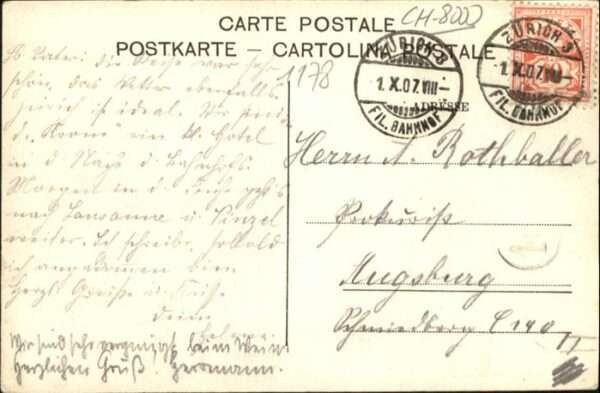 CARTE POSTALE
CH-8000
POSTKARTE – CARTOLINA POSTALE
1178
ZÜRICH 3
1.X.07.VIII–
FIL. BAHNHOF
ZÜRICH 3
1.X.07.VIII–
FIL. BAHNHOF
ADRESSE
Lb. Vater! die Reise war sehr
schön, das Wetter ebenfalls
Zürich ist ideal. Wir sind
Hotel
in d. Nähe d. Bahnhofs.
Morgen in d. Frühe geht's
nach Lausanne u.
weiter. Ich schreibe, sobald
ich angekommen bin
Herzl. Grüsse u. Küsse
Dein
Wir sind sehr vergnügt beim Wein
Herzlichen Gruß. Hermann.
Herrn A. Rothballer
Prokurist
Augsburg
Schmiedberg C 140
1